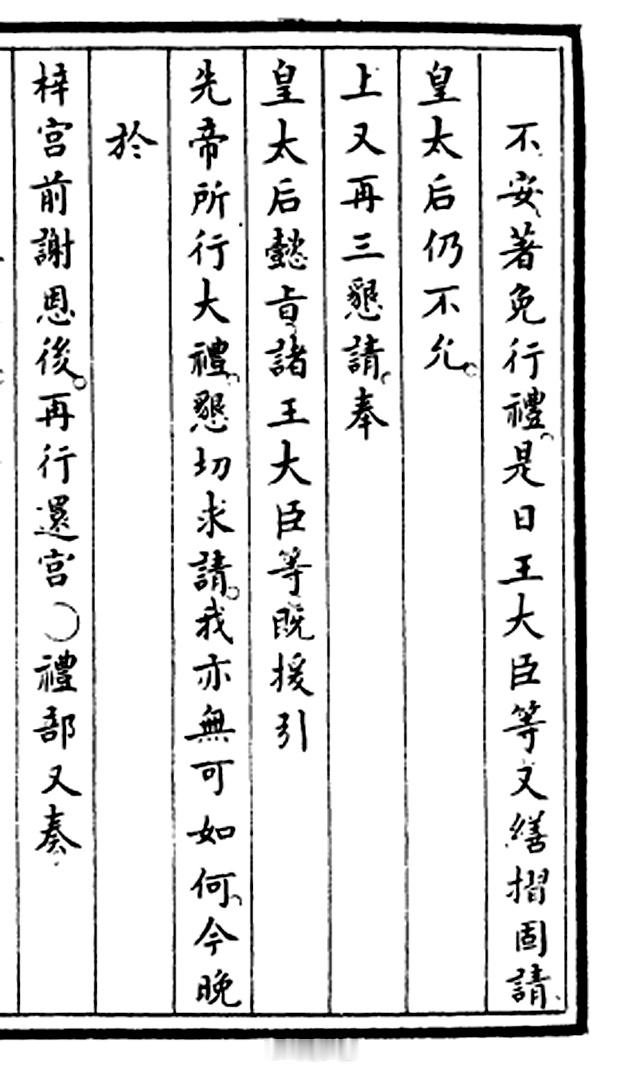 不安著免行禮。是日王大臣等又繕摺固請
皇太后仍不允。
上又再三懇請。奉
皇太后懿旨諸王大臣等既援引
先帝所行大禮。懇切求請。我亦無可如何。今晚
於
梓宮前謝恩後。再行還宮○禮部又奏